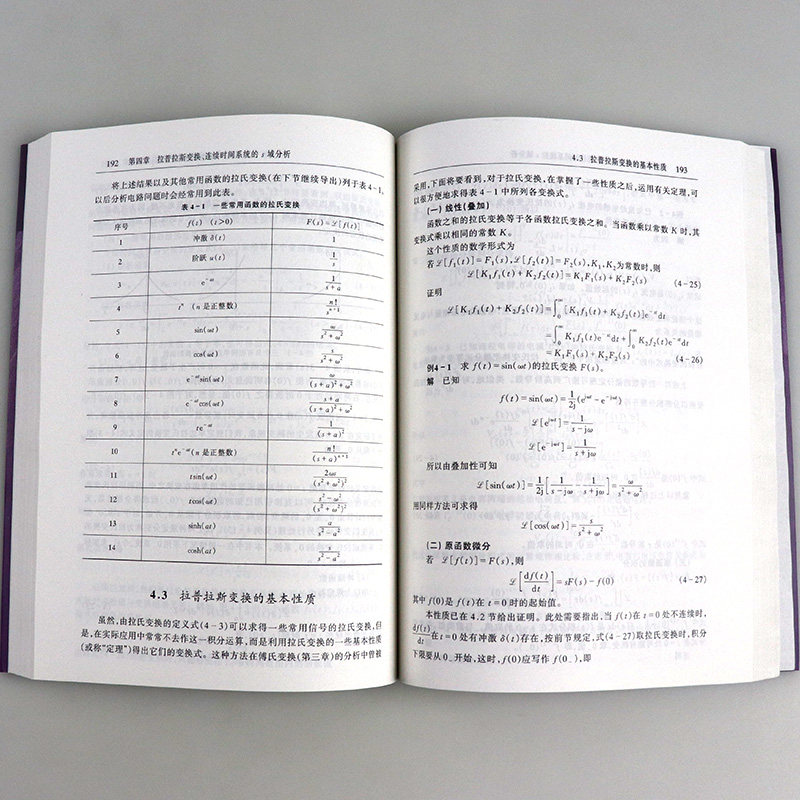 192 第四章 拉普拉斯变换、连续时间系统的 s 域分析
将上述结果以及其他常用函数的拉氏变换(在下节继续导出)列于表4-1,
以后分析电路问题时会经常用到此表。
表 4-1 一些常用函数的拉氏变换
序号 f(t) (t>0) F(s)=ℒ[f(t)]
1 冲激 δ(t) 1
2 阶跃 u(t) 1/s
3 e^{-at} 1/(s+a)
4 t^n (n 是正整数) n!/s^{n+1}
5 sin(ωt) ω/(s²+ω²)
6 cos(ωt) s/(s²+ω²)
7 e^{-at}sin(ωt) ω/((s+a)²+ω²)
8 e^{-at}cos(ωt) (s+a)/((s+a)²+ω²)
9 te^{-at} 1/(s+a)²
10 t^n e^{-at} (n 是正整数) n!/(s+a)^{n+1}
11 tsin(ωt) 2ωs/(s²+ω²)²
12 tcos(ωt) (s²-ω²)/(s²+ω²)²
13 sinh(at) a/(s²-a²)
14 cosh(at) s/(s²-a²)
4.3 拉普拉斯变换的基本性质
虽然,由拉氏变换的定义式(4-3)可以求得一些常用信号的拉氏变换,但
是,在实际应用中常常不去作这一积分运算,而是利用拉氏变换的一些基本性质
(或称“定理”)得出它们的变换式。这种方法在傅氏变换(第三章)的分析中曾被
4.3 拉普拉斯变换的基本性质 193
采用,下面将要看到,对于拉氏变换,在掌握了一些性质之后,运用有关定理,可
以很方便地求得表 4-1 中所列各变换式。
(一) 线性(叠加)
函数之和的拉氏变换等于各函数拉氏变换之和。当函数乘以常数 K 时,其
变换式乘以相同的常数 K。
这个性质的数学形式为
若 ℒ[f₁(t)]=F₁(s),ℒ[f₂(t)]=F₂(s),K₁,K₂为常数时,则
ℒ[K₁f₁(t)+K₂f₂(t)]=K₁F₁(s)+K₂F₂(s) (4-25)
证明
ℒ[K₁f₁(t)+K₂f₂(t)]=∫₀^∞[K₁f₁(t)+K₂f₂(t)]e^{-st}dt
=∫₀^∞K₁f₁(t)e^{-st}dt+∫₀^∞K₂f₂(t)e^{-st}dt
=K₁F₁(s)+K₂F₂(s) (4-26)
例4-1 求 f(t)=sin(ωt)的拉氏变换 F(s)。
解 已知
f(t)=sin(ωt)=1/2j(e^{jωt}-e^{-jωt})
ℒ[e^{jωt}]=1/(s-jω)
ℒ[e^{-jωt}]=1/(s+jω)
所以由叠加性可知
ℒ[sin(ωt)]=1/2j[1/(s-jω)-1/(s+jω)]=ω/(s²+ω²)
用同样方法可求得
ℒ[cos(ωt)]=s/(s²+ω²)
(二) 原函数微分
若 ℒ[f(t)]=F(s),则
ℒ[df(t)/dt]=sF(s)-f(0) (4-27)
其中 f(0)是 f(t)在 t=0 时的起始值。
本性质已在 4.2 节给出证明。此处需要指出,当 f(t)在 t=0 处不连续时,
df(t)/dt 在 t=0 处有冲激 δ(t)存在,按前节规定,式(4-27)取拉氏变换时,积分
下限要从 0₋开始,这时,f(0)应写作 f(0₋),即